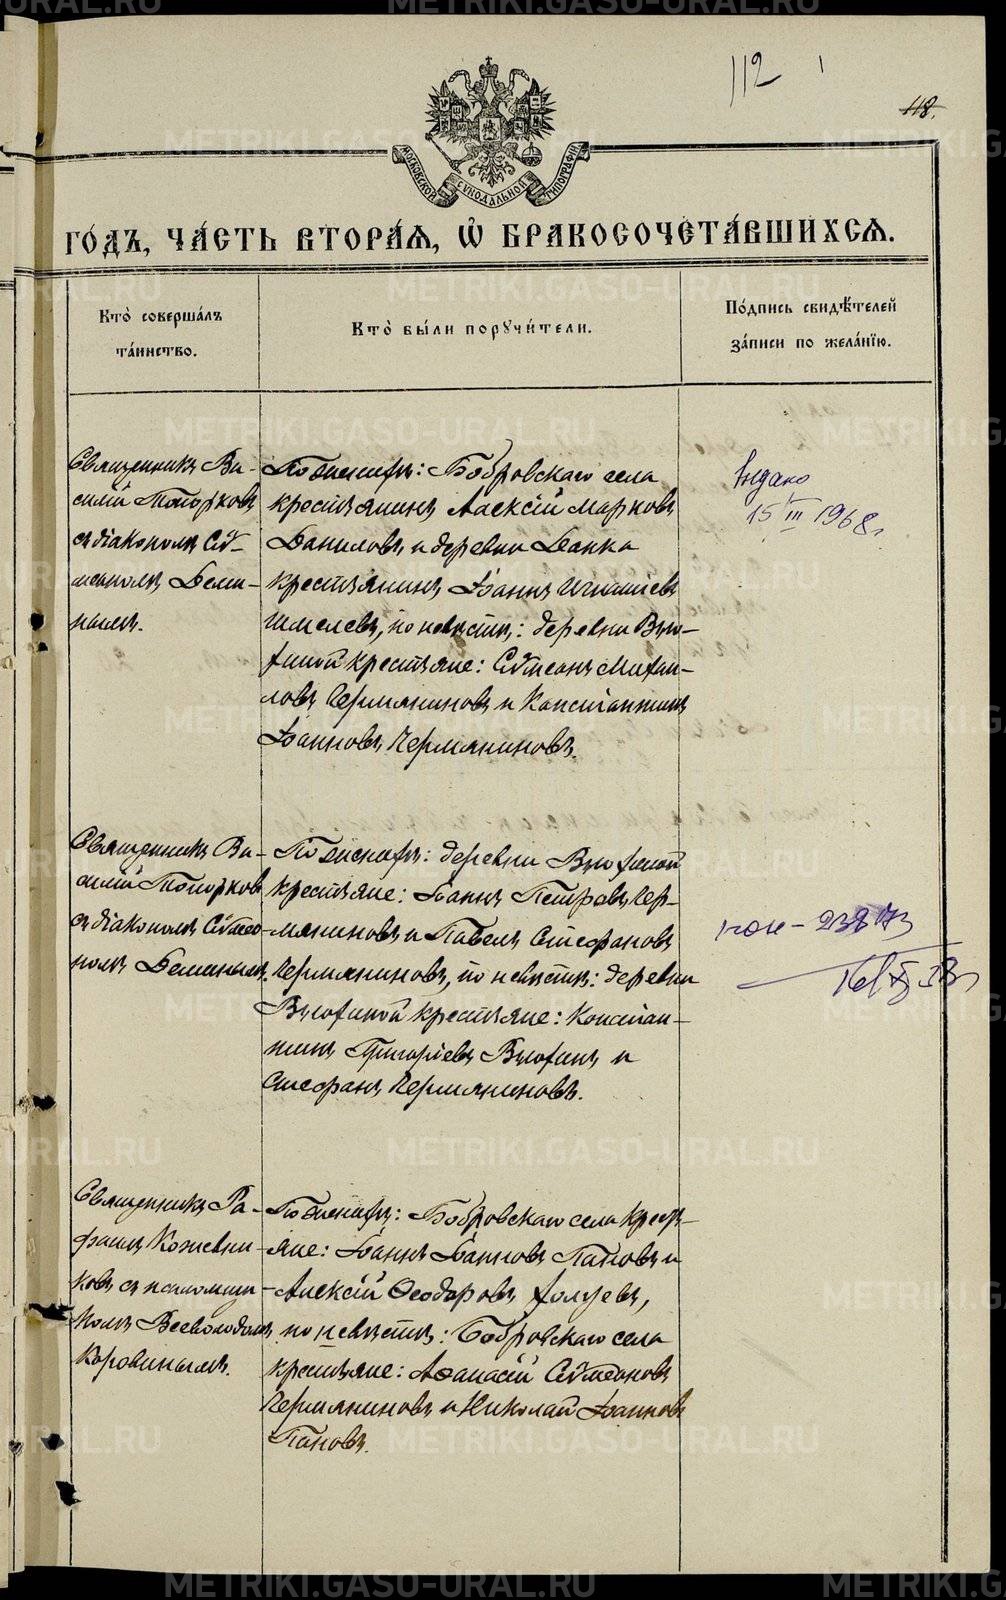 112
118.
МОСКОВСКОЙ СѴНОДАЛЬНОЙ ТИПОГРАФІИ
ГО́ДЪ, ЧА́СТЬ ВТОРА́Я, Ѡ҆ БРАКОСОЧЕТА́ВШИХСЯ.
Кто̀ соверша́лъ
та́инство.
Кто̀ бы́ли порꙋчи́тели.
По́дпись свидѣ́телей
за́писи по жела́нїю.
Священникъ Ва-
силій Топорковъ
съ діакономъ Сѵ-
меономъ
По женихѣ: Бобровскаго села
крестьянинъ Алексій Марковъ
Даниловъ и деревни
крестьянинъ Іоаннъ Игнатіевъ
Шмелевъ, по невѣстѣ: деревни Вью-
хиной крестьяне: Сѵмеонъ Михаи-
ловъ Чермяниновъ и Константинъ
Іоанновъ Чермяниновъ.
Выдано
15/III 1968г.
Священникъ Ва-
силій Топорковъ
съ діакономъ Сѵмео-
номъ
По женихѣ: деревни Вьюхиной
крестьяне: Іоаннъ Петровъ Чер-
мяниновъ и Павелъ Стефановъ
Чермяниновъ, по невѣстѣ: деревни
Вьюхиной крестьяне: Констан-
тинъ Григоріевъ Вьюхинъ и
Стефанъ Чермяниновъ.
Священникъ Ра-
фаилъ Кожевни-
ковъ съ псаломщи-
комъ Всеволодомъ
Коровинымъ.
По женихѣ: Бобровскаго села кресть-
яне: Іоаннъ Іоанновъ Пановъ и
Алексій Ѳеодоровъ
по невѣстѣ: Бобровскаго села
крестьяне: Аѳанасій Сѵмеоновъ
Чермяниновъ и Николай Іоанновъ
Пановъ.
METRIKI.GASO-URAL.RU